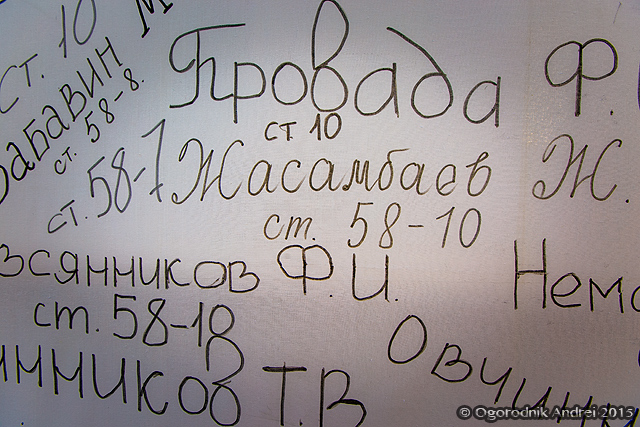 ст. 10 М
Бабавин
ст. 58-8.
Провада Ф.
ст 10
ст. 58-7 Жасамбаев Ж.
ст. 58-10
всянников Ф.И. Немо
ст. 58-10
инников Т.В Овчинн
© Ogorodnik Andrei 2015